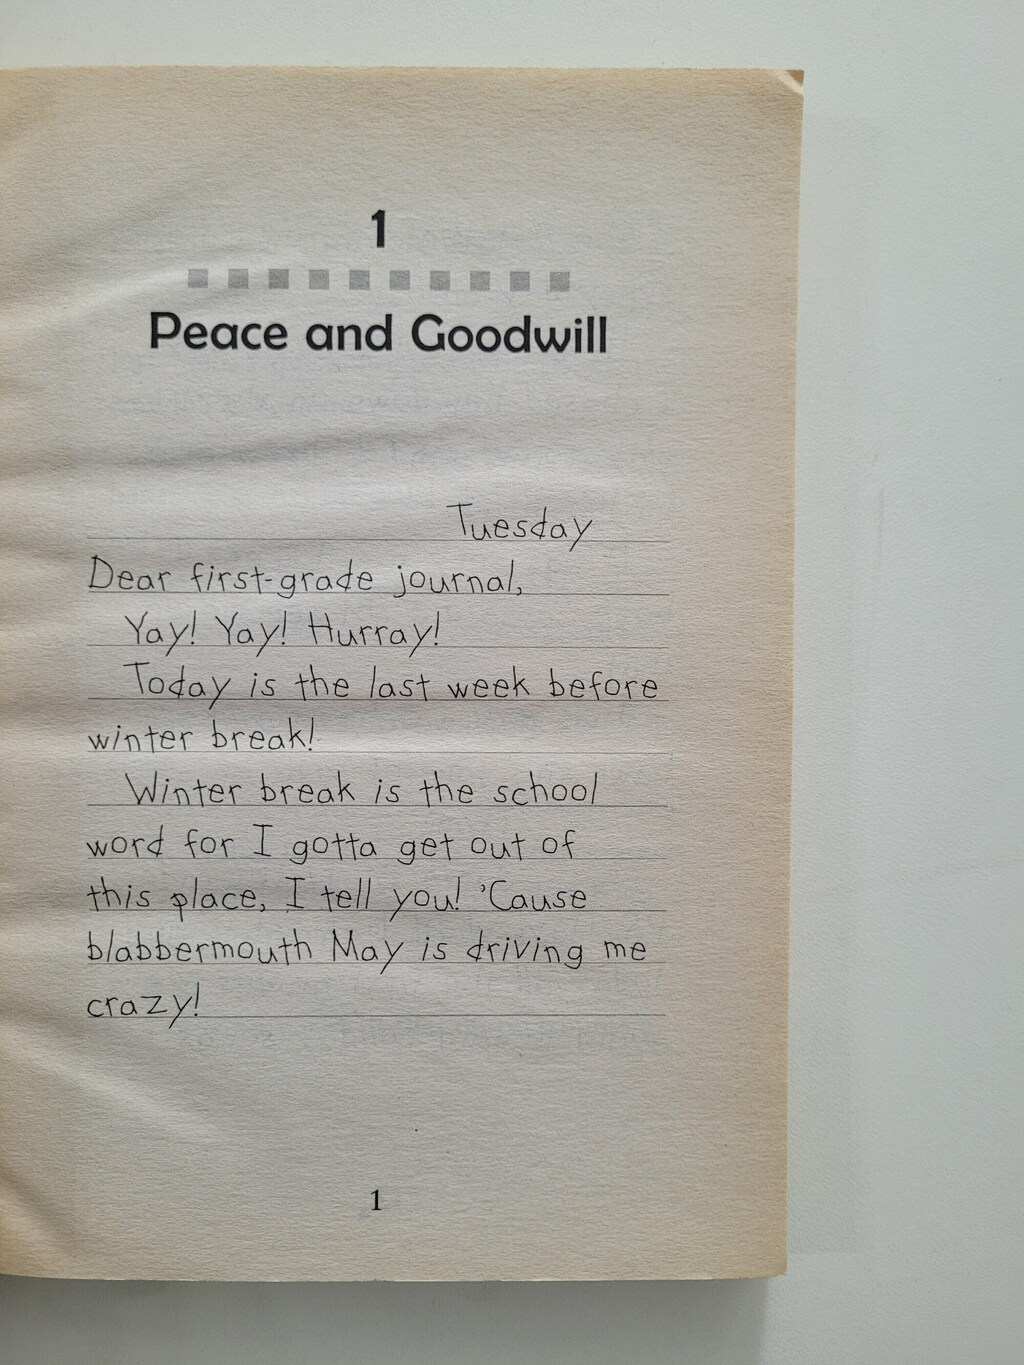 1
Peace and Goodwill
Tuesday
Dear first-grade journal,
Yay! Yay! Hurray!
Today is the last week before
winter break!
Winter break is the school
word for I gotta get out of
this place, I tell you! 'Cause
blabbermouth May is driving me
crazy!
1